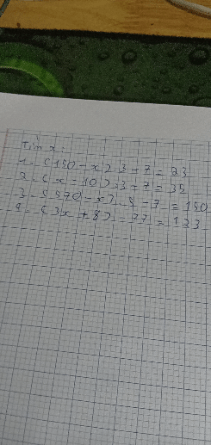 Tìm x:
1. (150 - x) : 3 + 7 = 23
2. (x - 10) . 3 + 7 = 35
3. (570 - x) . 5 - 7 = 150
4. (3x + 8) - 77 = 133